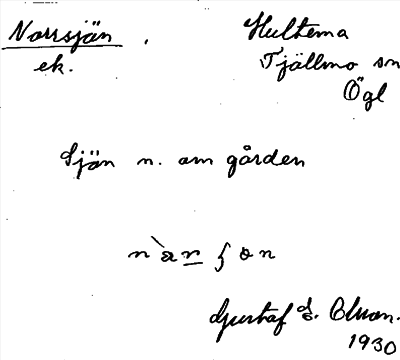 Norrsjön . Hultema
ek. Tjällmo sn
Ögl
Sjön n. om gården
Gustaf
1930